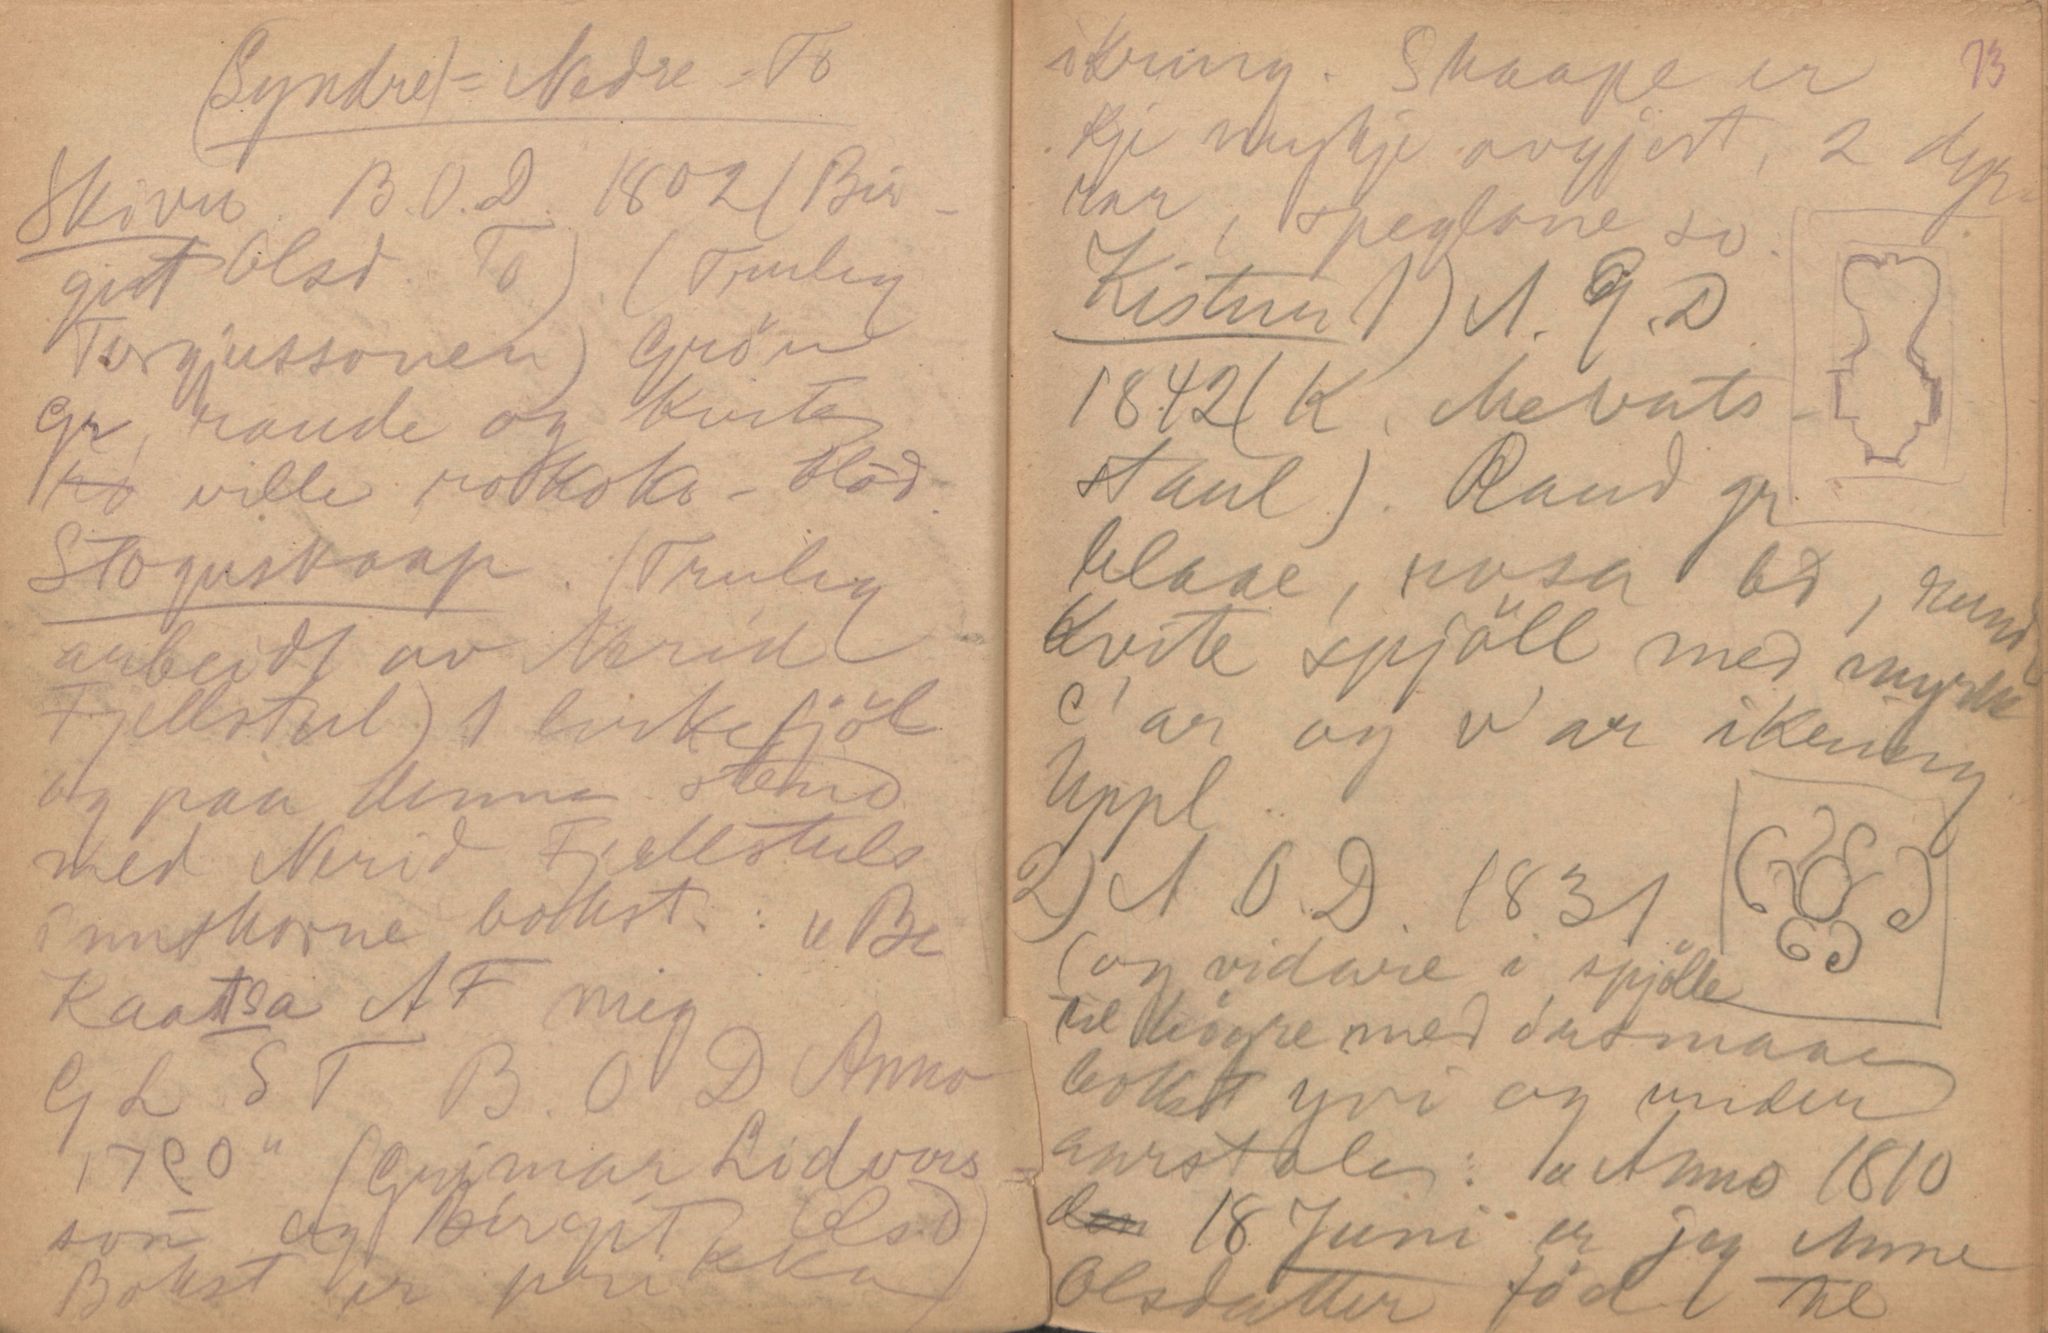 (Syndre) = Nedre - Tø
Skivu. B.O.D. 1802 (Bir-
git Olsd. Tø) (Truleg
Torgjussonen) Grön
gr, raude og kvite
ville rokoko-blöd.
Stoguskaap. (Truleg
arbeidt av Nerid
Fjellstul) 1 birkefjöl
og paa denne stend
med Nerid Fjellstuls
innskorne bokst.: "Be
Kaatsa AF mig
G L S T B.O D Anno
1790" (Gujmar Lidvors-
son og Birgit Olsd)
Bokst er prikka
ikring. Skaape er
kje mykje avgjort, 2 dyr-
rar, speglane so.
Kistur 1) A. G. D
1842 (K. Mevats-
staul). Raud gr
blaae, rosa bd, rund
kvite spjöll med myrke
c'ar og v'ar ikring
Uppl.
2) A O.D. 1831
(og vidare i spjölle
til högre med örsmaae
bokst yvi og under
aarstale: "Anno 1810
den 18 Juni er jeg Anne
Olsdatter föd til
73